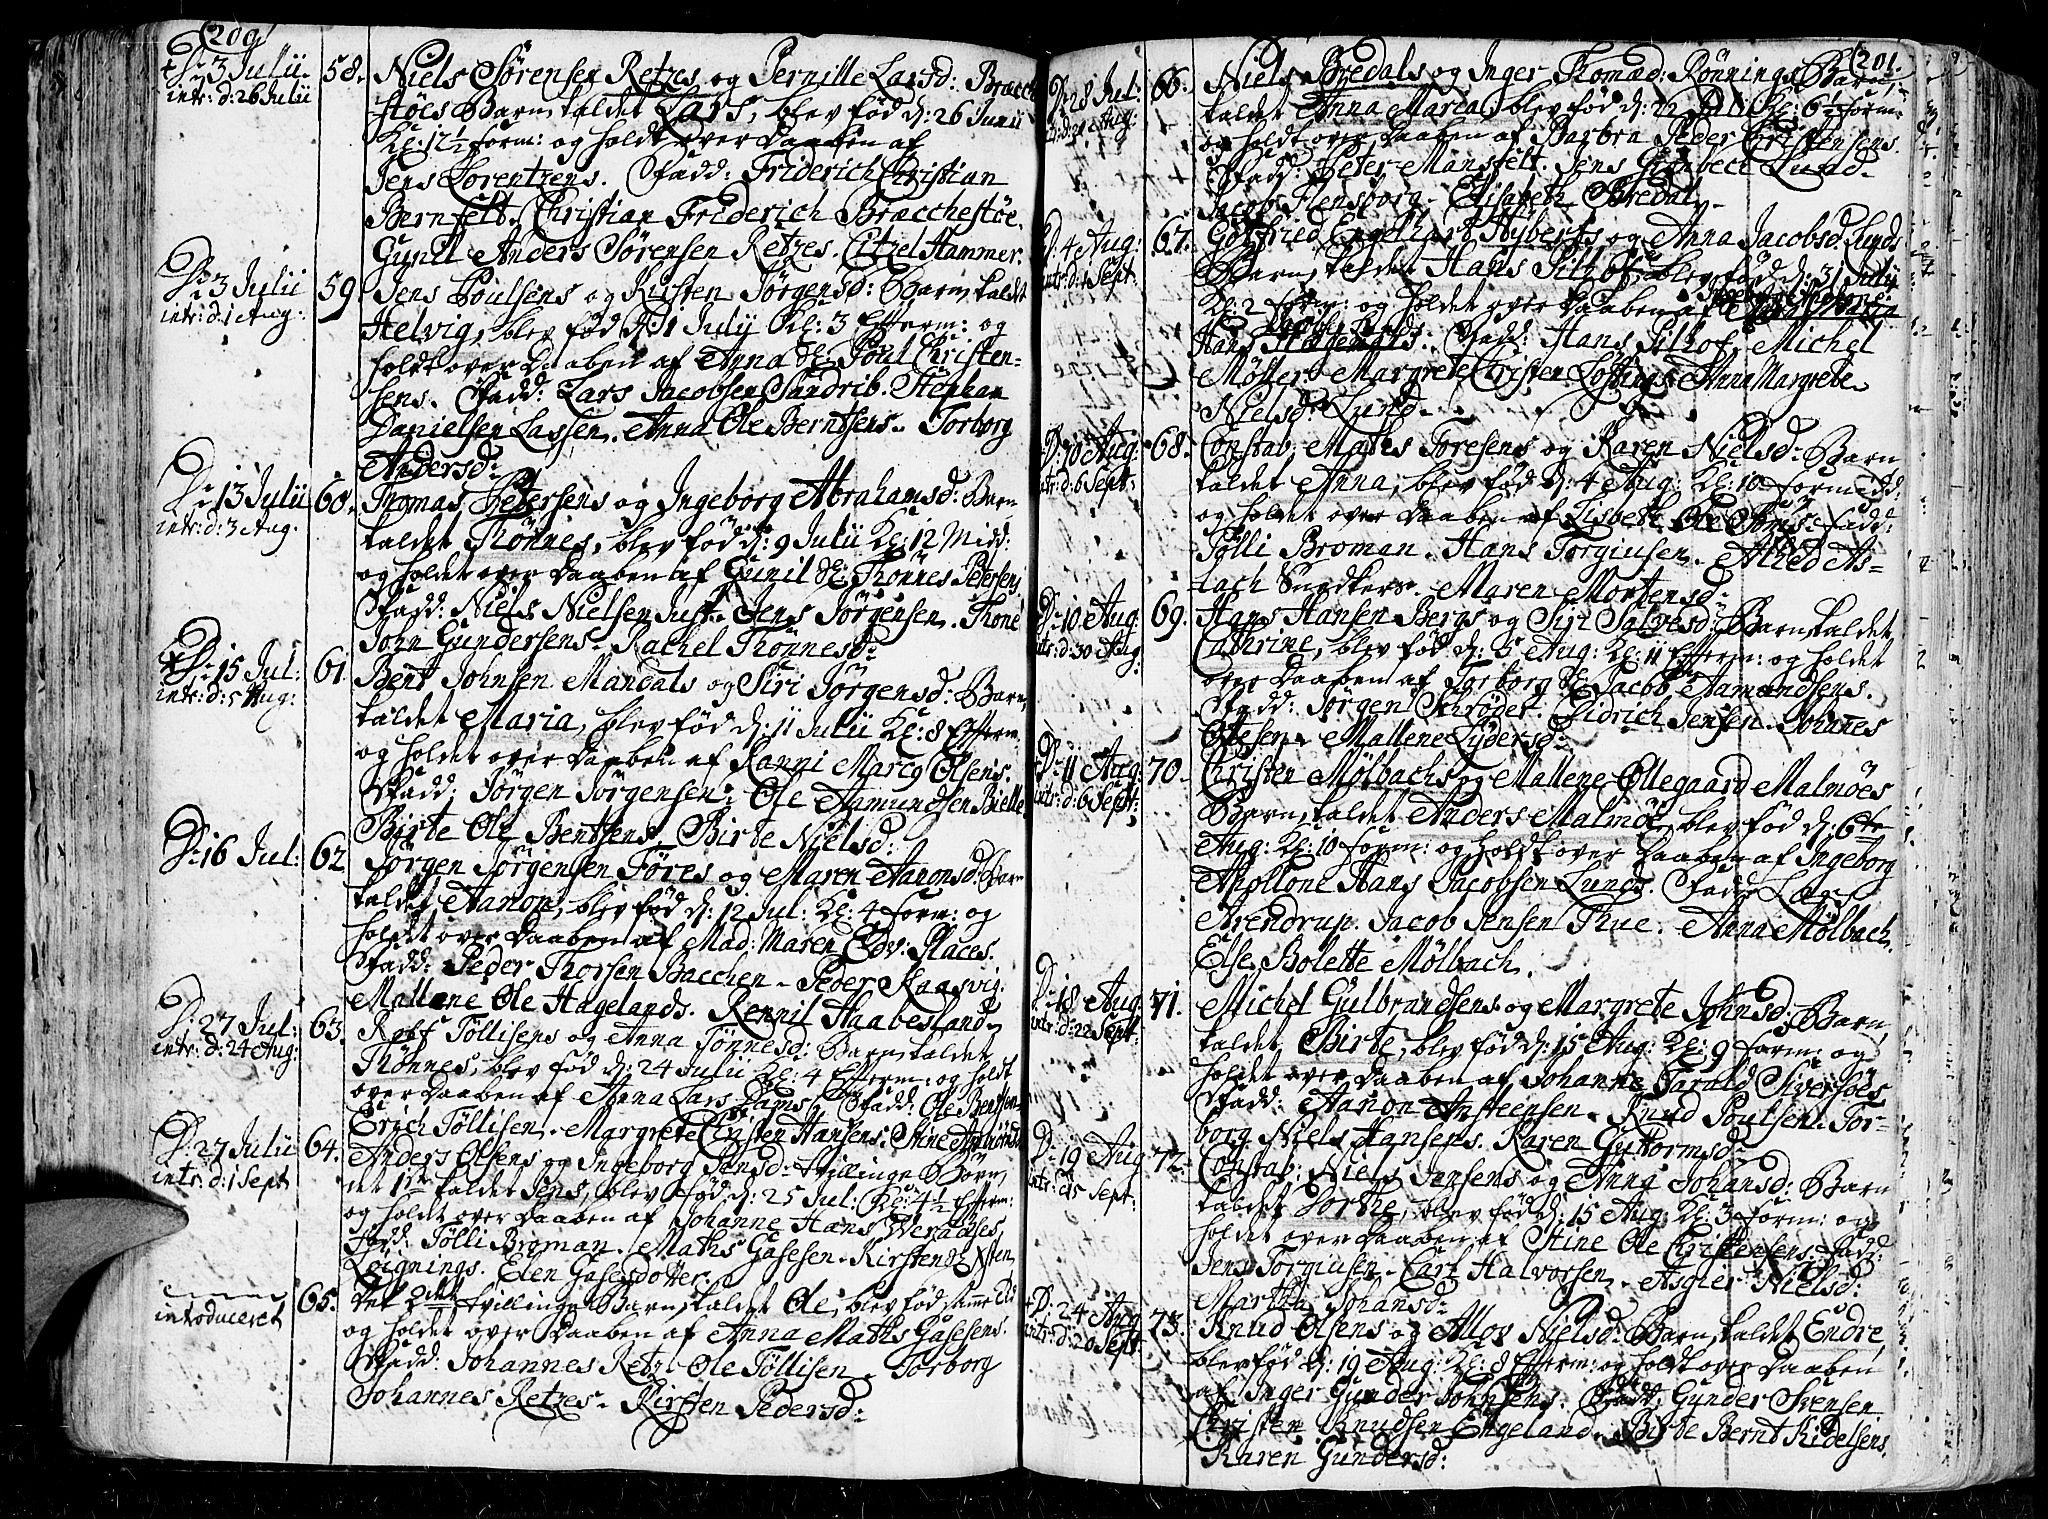 200
D: 3 Julii
intr: d: 26 Julii
58. Niels Sörensen Retzes og Pernille Larsd: Bracche
stöes Barn, kaldet Lars, blev föd d: 26 Junii
Kl: 12½ form: og holdt over Daaben af
Jens Lorentzens. Fadd: Friderich Christian
Bernfelt. Christian Friderich Bracchestöe.
Gunil Anders Sörensen Retzes. Citzel Hammer.
D: 3 Julii
intr: d: 1 Aug:
59 Jens Poulsens og Kirsten Jörgensd: Barn, kaldet
Helvig, blev föd d: 1 Julij Kl: 3 Efterm: og
holdt over Daaben af Anna Poul Christen-
sens. Fadd: Lars Jacobsen Sandrib. Stephan
Danielsen Lassen. Anna Ole Berntsens. Torborg
Andersd:
D: 13 Julii
intr: d: 3 Aug:
60. Thomas Petersens og Ingeborg Abrahamsd: Barn
kaldet Thönnes, blev föd d: 9 Julii Kl: 12 Midd:
og holdet over Daaben af Gunil Thönnes Petersens
Fadd: Niels Nielsen Just. Jens Jörgensen. Thone
John Gundersens. Rachel Thönnesd:
D: 15 Jul:
intr: d: 5 Aug:
61. Bent Johnsen Mandals og Siri Jörgensd: Barn,
kaldet Maria, blev föd d: 11 Julii Kl: 8 Efterm.
og holdet over Daaben af Ranni Marcg Olsens.
Fadd: Jörgen Jörgensen. Ole Aamundsen Bielle
Birte Ole Bentsens. Birte Nielsd:
D: 16 Jul:
62 Jörgen Jörgensen Föres og Maren Aanonsd: Barn
kaldet Aanon, blev föd d: 12 Jul: Kl: 4 form: og
holdt over Daaben af Mad: Maren Edv: Places.
Fadd: Peder Thorsen Bacchen. Peder Kaasvig.
Mallene Ole Hagelands. Rennil Haabesland.
D: 27 Jul:
intr: d: 24 Aug:
63. Rolf Töllisens og Anna Tönnesd: Barn, kaldet
Thönnes, blev föd d: 24 Julii Kl: 4 Efterm: og holdt
over Daaben af Anna Lars Dams. Fadd: Ole Bentsen
Erich Töllisen. Margrete Christen Hansens. Stine
D: 27 Julii
intr: d: 1 Sept
64. Anders Olsens og Ingeborg Jensd: tvillinge Börn,
det 1te kaldet Jens, blev föd d: 25 Jul: Kl: 4½ Efterm:
og holdet over Daaben af Johanne Hans Weraases.
Fadd: Tölli Broman. Maths Gasesen. Kirsten
Löignings. Elen Gasesdotter.
introduceret
65. Det 2det tvillinge Barn, kaldet Ole, blev föd samme
og holdet over Daaben af Anna Maths Gasesens.
Fadd: Johannes Retz. Ole Töllisen. Torborg
Johannes Retzes. Kirsten Pedersd:
201.
D: 28 Jul:
66. Niels Bredals og Inger Thomad: Rönnings Barn,
kaldet Anna Maria, blev föd d: 22 Kl: 6½ form:
og holdt over Daaben af Barbra Peder Christensens.
Fadd: Peter Mansfelt. Jens Lund.
Jacob Flensborg. Elisabeth Bredal.
D: 4 Aug:
intr: d: 1 Sept
67. Gotfried Engelhart Nyberts og Anna Jacobsd Lunds
Barn, kaldet Hans Pilhof, blev föd d: 31 Julij
Kl: 2 form: og holdet over Daaben af Ingeborg Apolone
Hans Lunds. Fadd: Hans Pilhof. Michel
Möller. Margrete Christen Anna Margrete
Nielsd: Lund.
D: 10 Aug:
intr: d: 6 Sept:
68. Constab: Mathis Toresens og Karen Nielsd: Barn
kaldet Anna, blev föd d: 4 Aug: Kl: 10 formidd:
og holdet over Daaben af Lisbeth Ole Fadd:
Tölli Broman. Hans Torgiusen. Alhed As-
lach Snedkers. Maren Mortensd:
D: 10 Aug:
intr: d: 30 Aug:
69. Hans Hansen Bergs og Siri Salvesd: Barn, kaldet
Cathrine, blev föd d: 5 Aug: Kl: 11 Efterm: og holdet
over Daaben af Torborg Jacob Aamundsens.
Fadd: Jörgen Schröder. Didrich Jensen. Johanes
Otesen. Mallene Lydersd:
D: 11 Aug:
intr: d: 6 Sept:
70. Christen Mölbachs og Mallene Ollegaard Malmöes
Barn, kaldet Anders Malmöe, blev föd d: 6te
Aug: Kl: 10 form: og holdt over Daaben af Ingeborg
Apollone Hans Jacobsen Lunds. Fadd:
Arendrup. Jacob Jensen Thue. Anna Mölbach.
Else Bolette Mölbach.
D: 18 Aug:
intr: d: 22 Sept:
71. Michel Gulbrandsens og Margrete Johnsd: Barn,
kaldet Birte, blev föd d: 15 Aug: Kl: 9 form: og
holdet over Daaben af Johanne Tarald Siversöes
Fadd: Aanon Ansteensen. Knud Poulsen. Tor-
borg Niels Hansens. Karen Guttormsd:
D: 19 Aug:
intr: d: 15 Sept:
72. Constab: Niels Jensens og Anna Johansd: Barn
kaldet Dorthe, blev föd d: 15 Aug: Kl: 3 form: og
holdet over Daaben af Stine Ole Christensens. Fadd:
Jens Torgiusen. Carl Halvorsen. Asgier Nielsd:
Martha Johansd:
D: 24 Aug
intr: d: 20 Sept:
73. Knud Olsens og Allov Nielsd: Barn, kaldet Endre,
blev föd d: 19 Aug: Kl: 8 Efterm: og holdt over Daaben
af Inger Gunder Johnsens. Fadd: Gunder Svensen
Christen Knudsen Engeland. Birte Bernt Kidelsens.
Karen Gundersd: